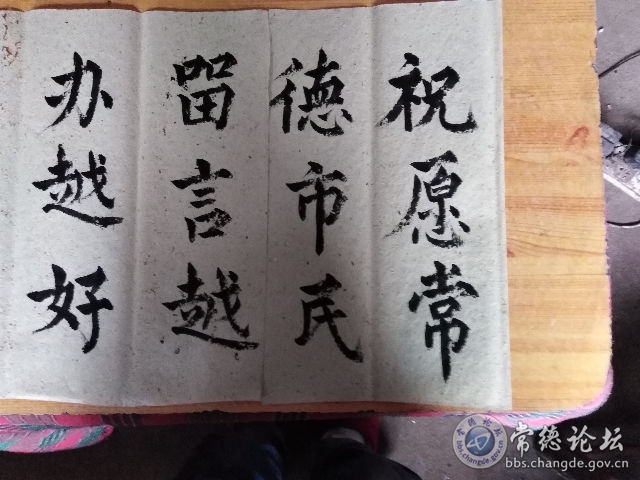 祝愿常
德市民
留言越
办越好
常德论坛
bbs.changde.gov.cn